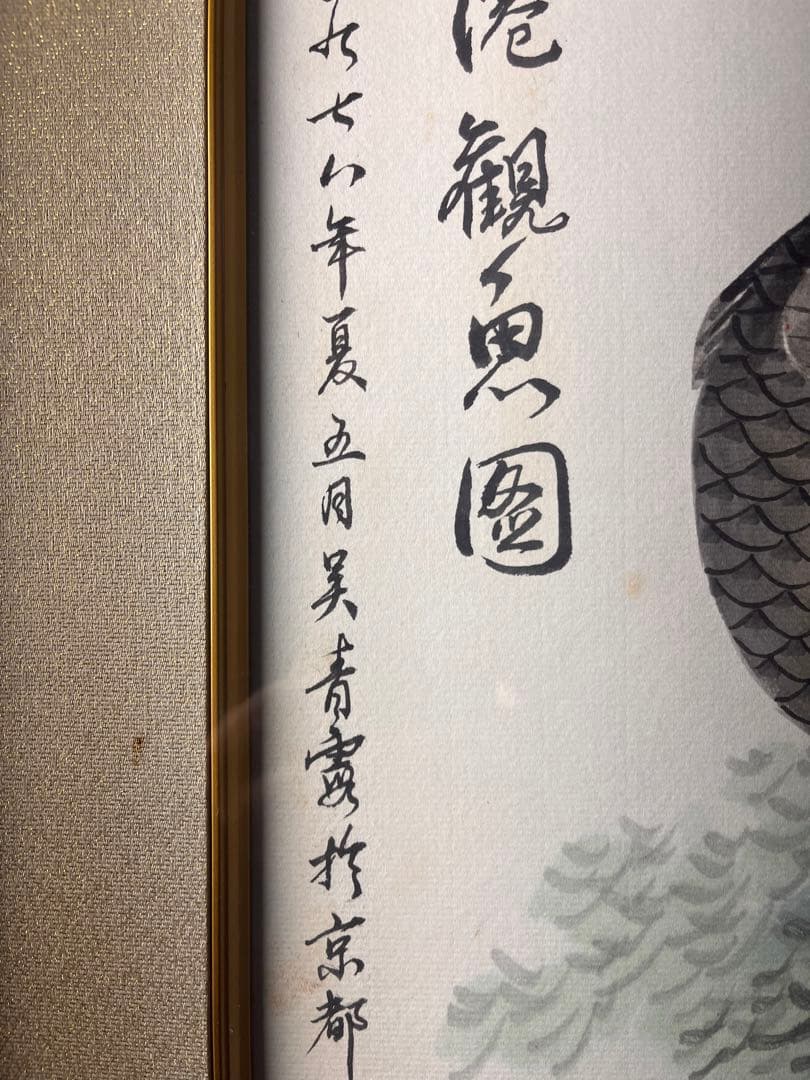 港觀魚圖
九七八年夏五月吴青霞於京都